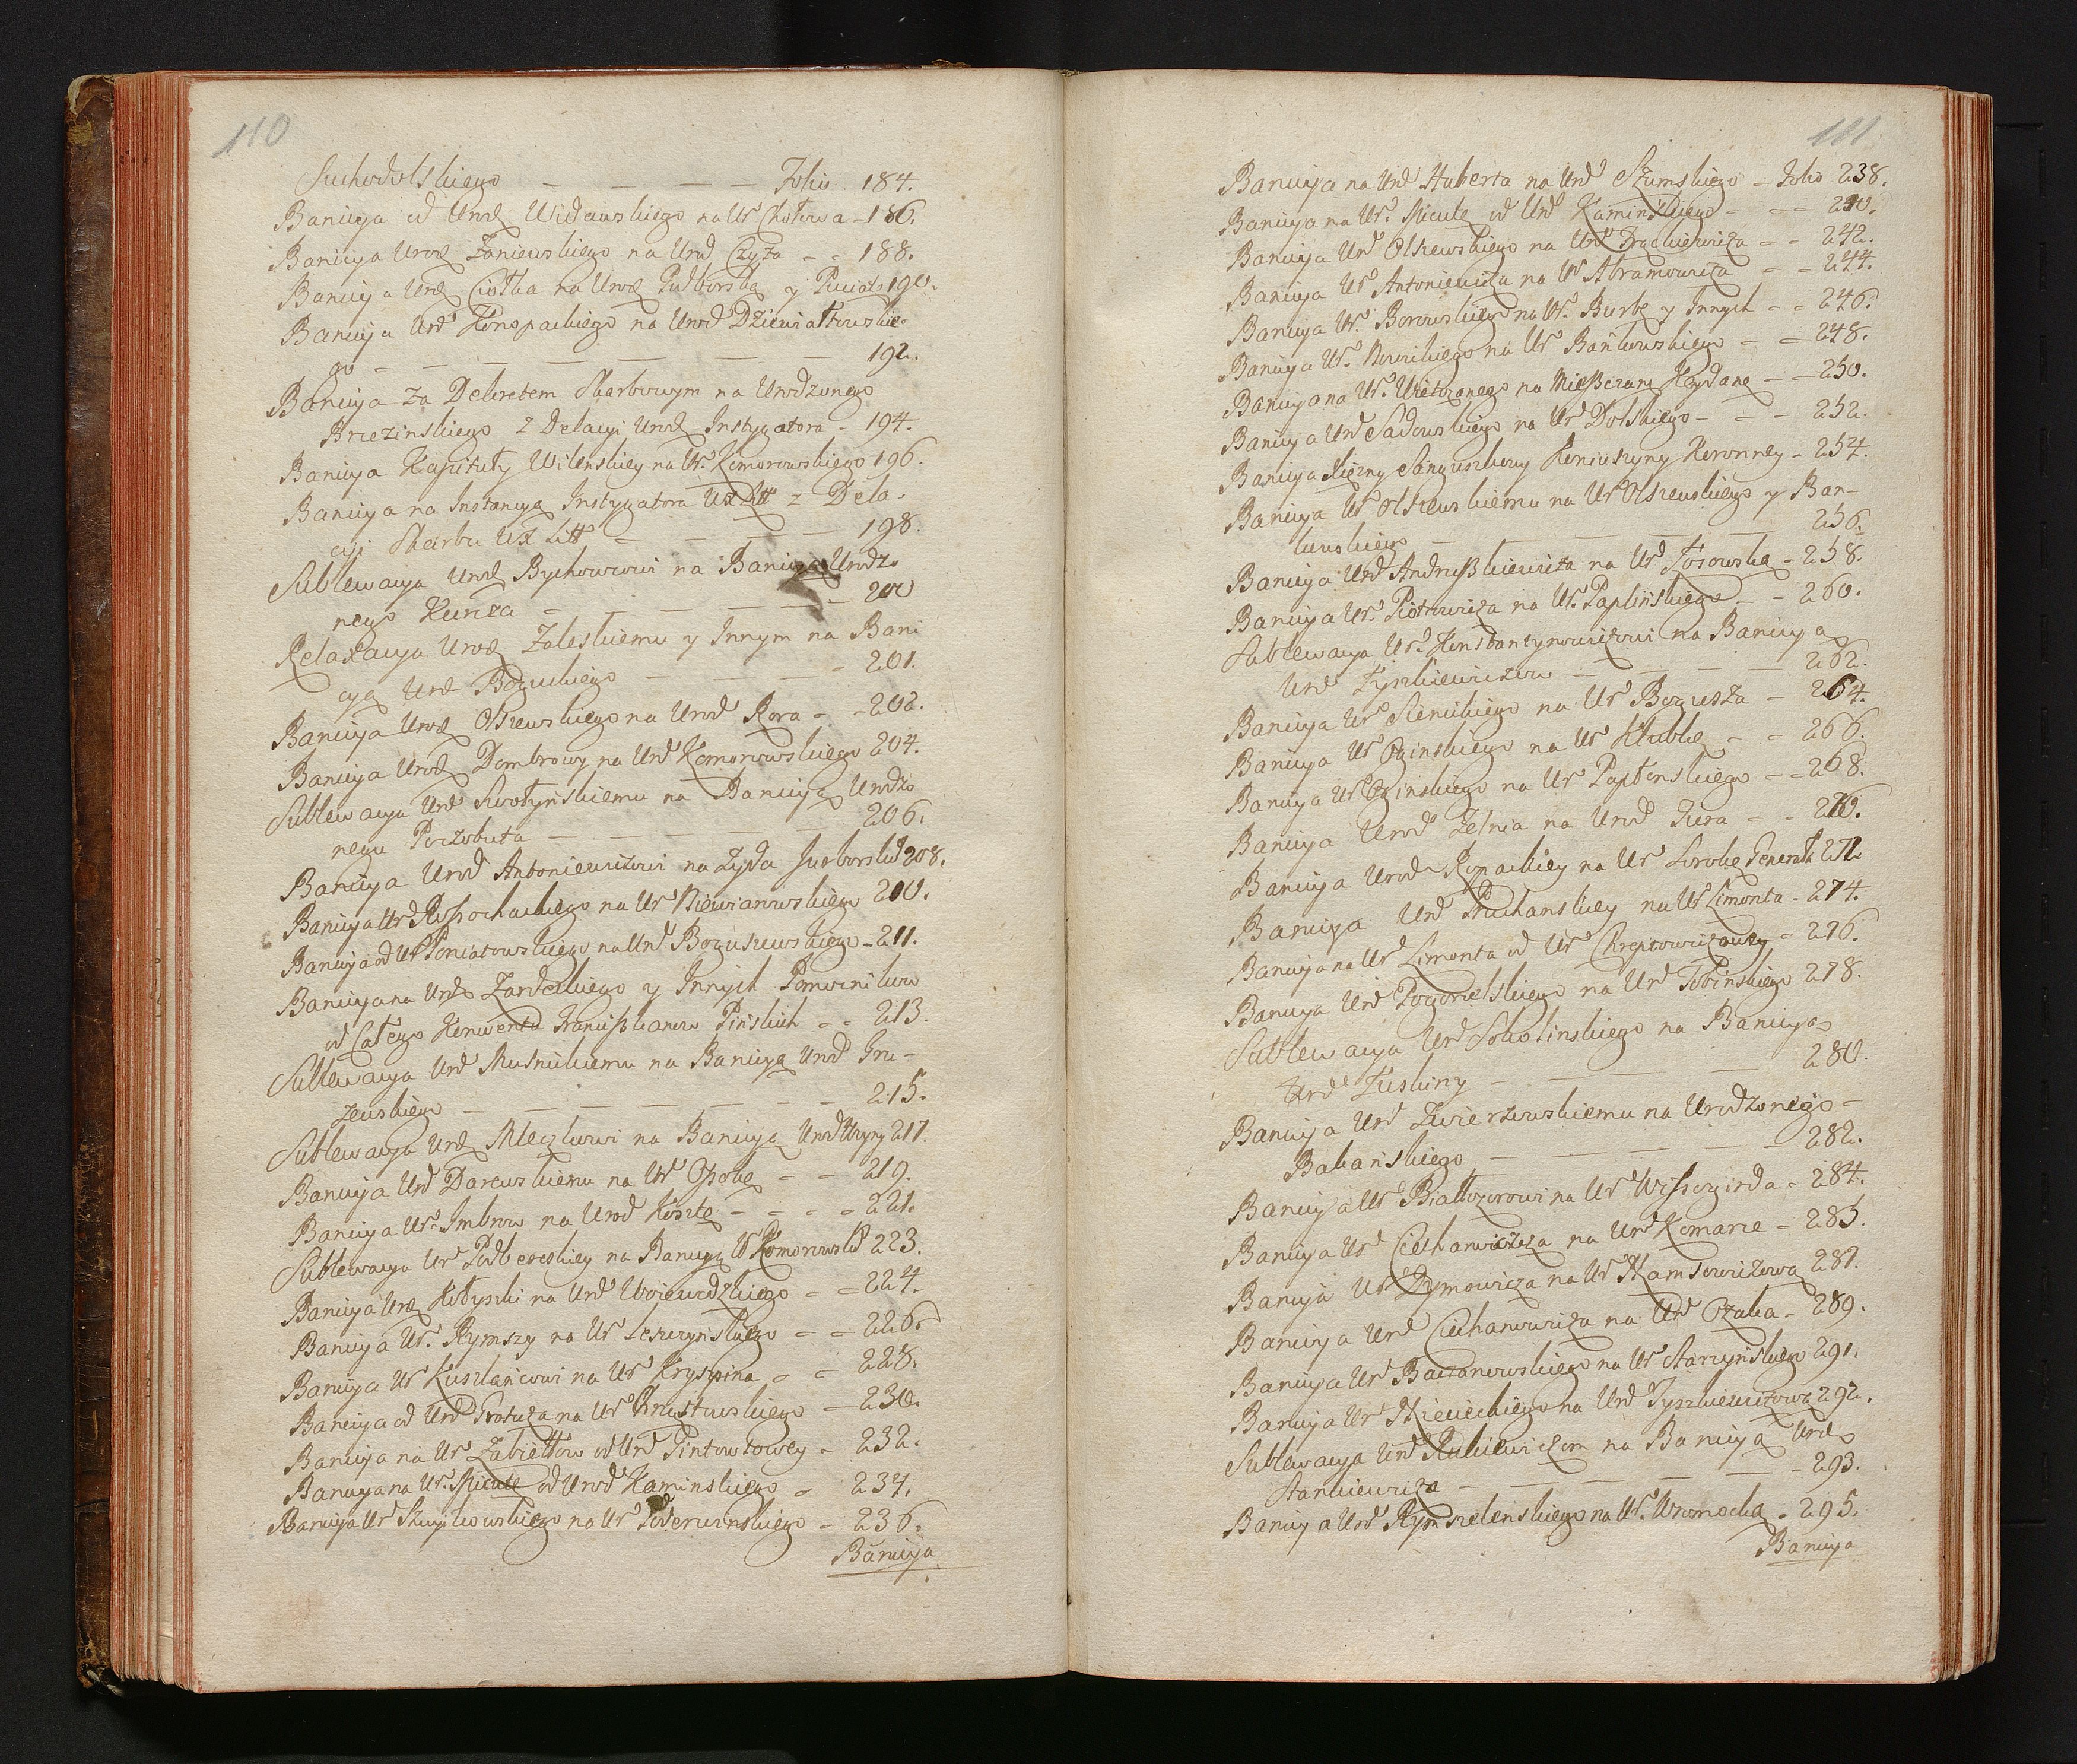 110
Suchodolskiego — — — — Folio 184.
Banicya od Urod Widawskiego na Ur Chołowa — 186.
Banicya Urod Zaniewskiego na Urod Czyża - - 188.
Banicya Urod Ciołka na Urod Podborską y Puciat. 190.
Banicya Urd Konopackiego na Urod Dziewiałtowskie-
go — — — — — — 192.
Banicya za Dekretem Skarbowym na Urodzonego
Brzezinskiego z Delacyi Urod Instygatora - 194.
Banicya Kapituły Wilenskiey na Ur. Komorowskiego 196.
Banicya na Instancyą Instygatora WX Litt z Dela-
cyi Skarbu WX Litt — — — — 198.
Sublewacya Urod Bychowcowi na Banicyą Urodzo
nego — — — — 200
Relaxacya Urod Zaleskiemu y Innym na Bani
cyą Urod Boguckiego — — — - 201.
Banicya Urod Olszewskiego na Urod Rora - - 202.
Banicya Urod Dombrowy na Urd Komorowskiego 204.
Sublewacya Urd Swołyńskiemu na Banicyą Urodzo
nego Poczobuta — — — — 206.
Banicya Urod Antoniewiczowi na Żyda Jurborskd 208.
Banicya Urd Rosochackiego na Ur Niewiarowskiego 210.
Banicya od Ur Poniatowskiego na Urd Boguszewskiego - 211.
Banicya na Urdo Zardeckiego y Innych Pomocnikow
od Całego Konwentu Franciszkanow Pińskich - - 213.
Sublewacya Urd Musnickiemu na Banicyą Urod Gru-
żewskiego — — — — — — 215.
Sublewacya Urod Mleczkowi na Banicyą Urod 217.
Banicya Urd Darewskiemu na Ur Opokę - - 219.
Banicya Ur. Imbrow na Urod Kosztę - - - 221.
Sublewacya Ur Podbereskiey na Banicyą Ur Komorowskd 223.
Banicya Urod Kołyszki na Urd Woiewodzkiego - - 224.
Banicya Ur. Rymszy na Ur Leszczyńskiego - - 226.
Banicya Ur Kuszlańcowi na Ur Kryspina - - 228.
Banicya od Urd Protuza na Ur Chrząstowskiego - 230.
Banicya na Ur Zabiełłow od Urd Pintowtowey - 232.
Banicya na Ur. Micutę od Urod Kaminskiego - 234.
Banicya Ur na Ur Poderwinskiego - 236.
Banicya
111.
Banicya na Urd Huberta na Urd Szumskiego - Folio 238.
Banicya na Ur. Micutę od Urd Kamińskiego - - 240.
Banicya Urd Olszewskiego na Urd Frąckiewicza - - 242.
Banicya Ur Antoniewicza na Ur Abramowicza - - 244.
Banicya Ur. Borowskiego na Ur. Burbę y Innych - - 246.
Banicya Ur. Nowickiego na Ur Bańkowskiego - - 248.
Banicya na Ur. na Mieszczanę Keydanę - - 250.
Banicya Urd Sadowskiego na Ur Dolskiego - - - 252.
Banicya Xiężny Sanguszkowy Koniuszyny Koronney - 254.
Banicya Ur Olszewskiemu na Ur Olszewskiego y Ban-
kowskiego — — — — — 256.
Banicya Urd Andruszkiewicza na Ur Fosowską - 258.
Banicya Ur. Piotrowicza na Ur. Paplińskiego - - 260.
Sublewacya Ur. Konstantynowiczowi na Banicyą
Urd Tyszkiewiczow — — — — 262.
Banicya Ur Sienickiego na Ur Bogusza - 264.
Banicya Ur Oginskiego na Ur Kłubkę - - 266.
Banicya Ur Oginskiego na Ur Paplonskiego - - 268.
Banicya Urod Zelnia na Urod Giera - - 270.
Banicya Urod Kopackiey na Ur Sorokę Generała 272
Banicya Urd Pruchanskiey na Ur Limonta - 274.
Banicya na Ur Limonta od Ur Chreptowiczowey - 276.
Banicya Urd Pogorzelskiego na Urd Fobinskiego 278.
Sublewacya Urd Sokolinskiego na Banicyą
Urd Fuskiny — — — — 280.
Banicya Urd Zwierzewskiemu na Urodzonego -
Bakańskiego — — — — — 282.
Banicya Ur Białłozorowi na Ur Wissogirda - 284.
Banicya Ur Ciechanwicza na Urd Komara - 285.
Banicya Ur Szymowicza na Ur Hamsowiczową 287.
Banicya Urd Ciechanowicza na Urd Ożuka - 289.
Banicya Urd Baczanowskiego na Ur Starzyńskiego 291.
Banicya Ur Niesieckiego na Urd Tyszkiewiczową 292.
Sublewacya Urd Rukiewiczom na Banicyą Urdo
Stankiewicza — — — — 293.
Banicya Urd na Ur. Woronocka - 295.
Banicya